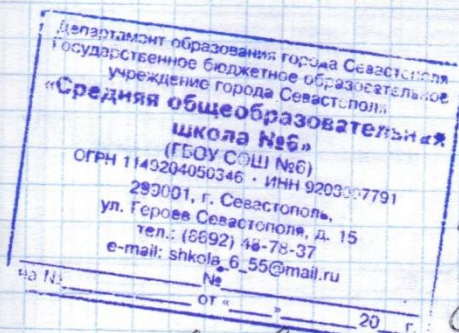 Департамент образования города Севастополя
Государственное бюджетное образовательное
учреждение города Севастополя
«Средняя общеобразовательная
школа №6»
(ГБОУ СОШ №6)
ОГРН 1149204050346 · ИНН
г. Севастополь,
ул. Героев Севастополя, д. 15
тел.: (8692)
e-mail: shkola_6_55@mail.ru
№
на №
от « » 20 г.